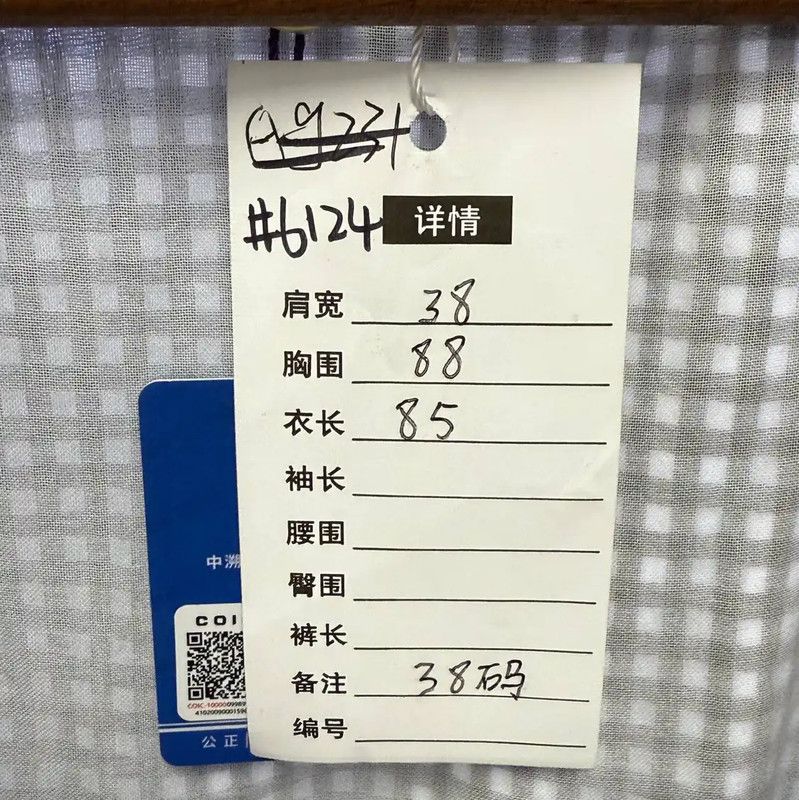 A9231
#6124 详情
肩宽 38
胸围 88
衣长 85
袖长
腰围
臀围
裤长
备注 38码
编号
中溯
COI
公正